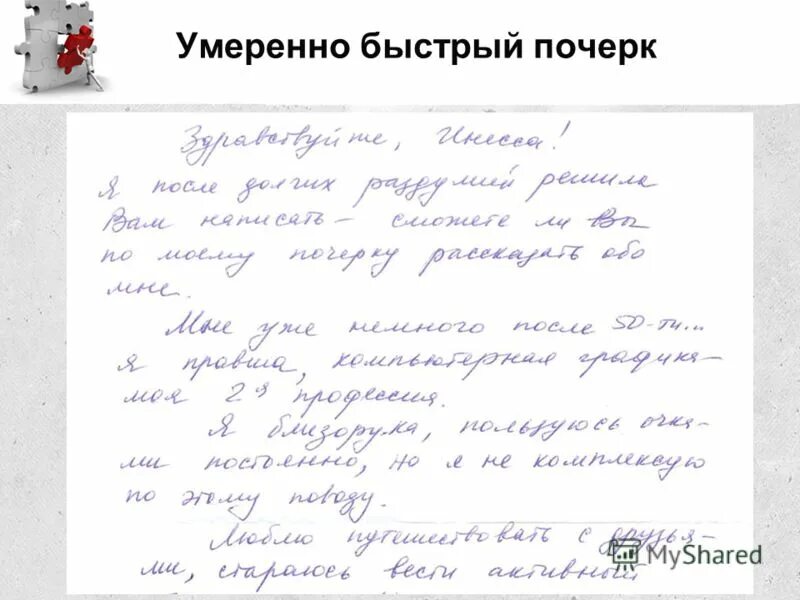 Умеренно быстрый почерк
Здравствуйте, Инесса!
Я после долгих раздумий решила
Вам написать – сможете ли Вы
по моему почерку рассказать обо
мне.
Мне уже немного после 50-ти...
я правша, компьютерная графика-
моя 2я профессия.
Я близорука, пользуюсь очка-
ми постоянно, но я не комплексую
по этому поводу.
Люблю путешествовать с друзья-
ми, стараюсь вести активный
MyShared